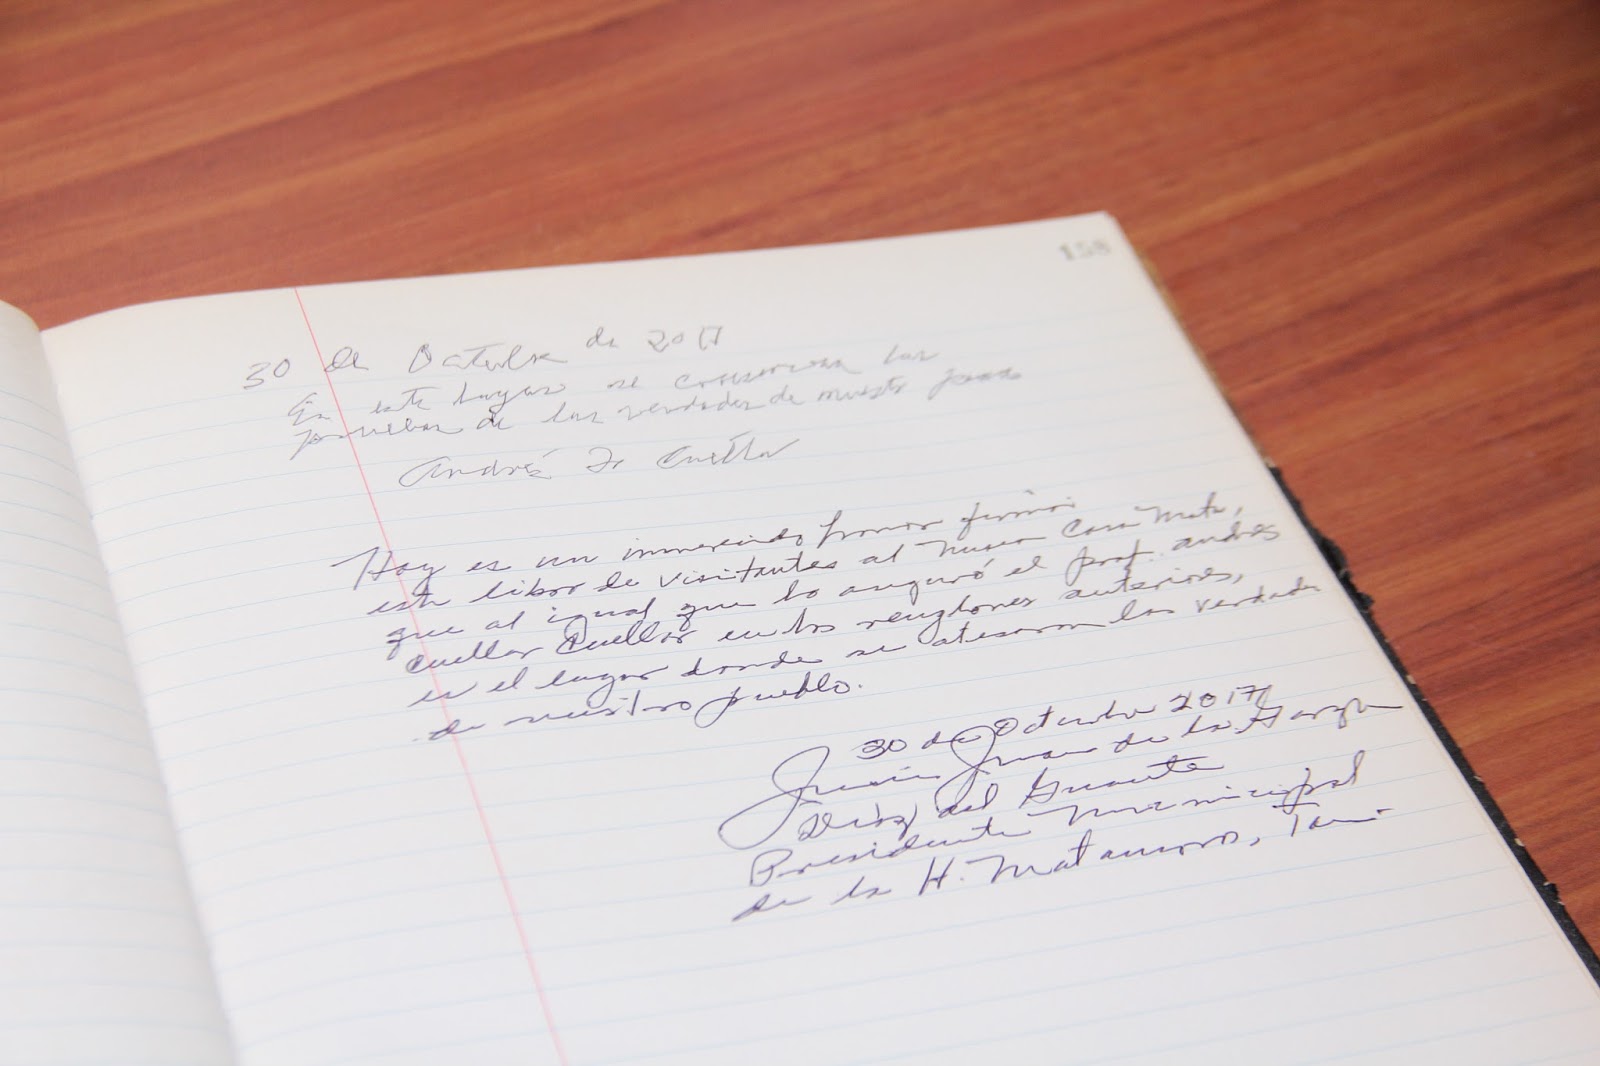 158
30 de Octubre de 2017
En este lugar se conservan las
pruebas de las verdades de nuestr
Andrés F Cuellar
Hoy es un inmerecido honor firmar
este libro de visitantes al Museo Casa Mata,
que al igual que lo auguró el prof. Andrés
Cuellar Cuellar en los renglones anteriores,
es el lugar donde se atesoran las verdades
de nuestro pueblo.
30 de Octubre 2017
Jesús Juan de la Garza
Díaz del Guante
Presidente Municipal
de la H. Matamoros, Tam.